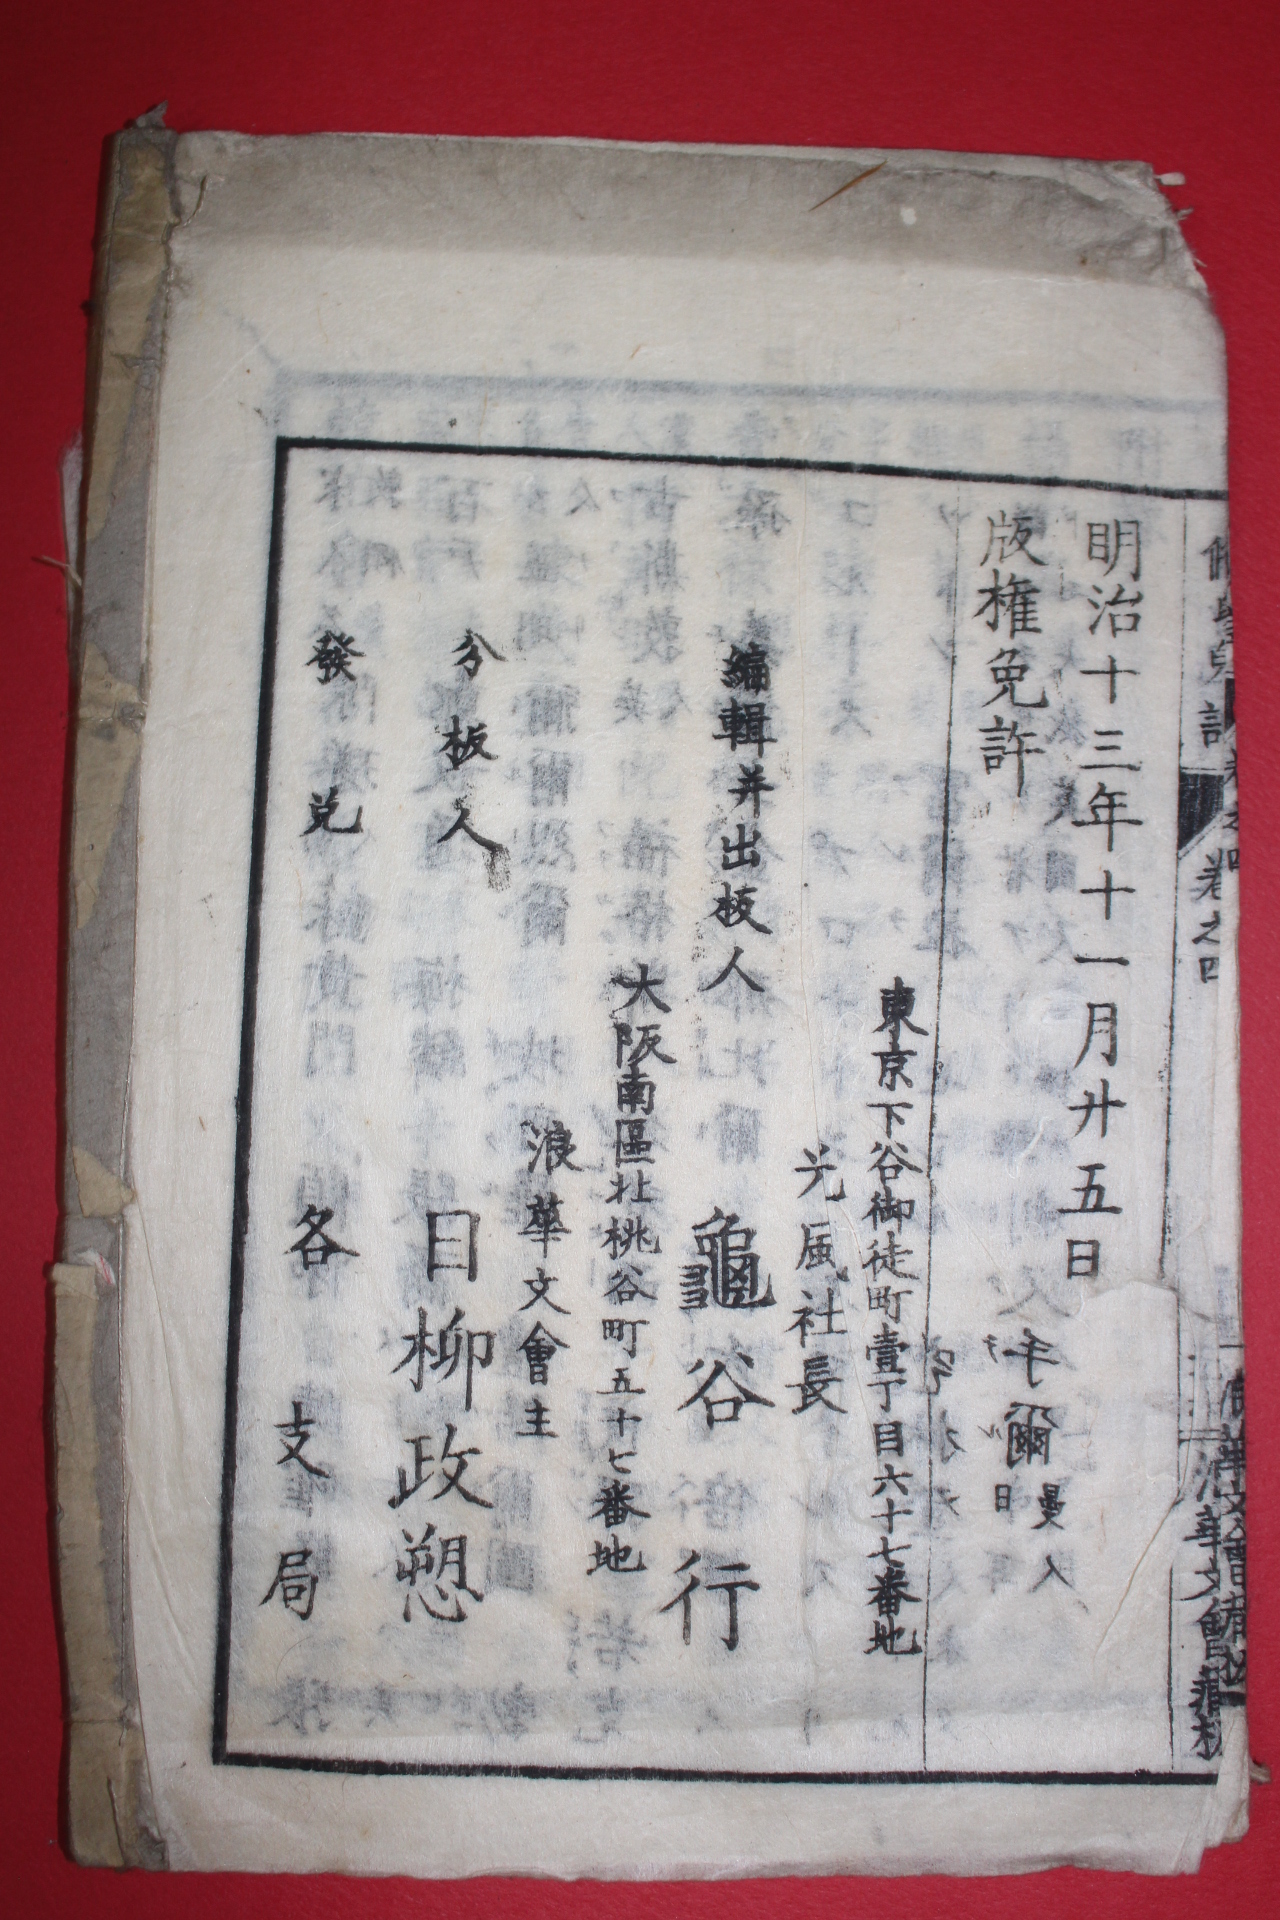 明治十三年十一月廿五日
版権免許
東京下谷御徒町壹丁目六十七番地
光風社長
編輯并出板人
龜谷行
大阪南區北桃谷町五十七番地
浪華文會主
分板人
日柳政愬
發兌
各支局
卷之四